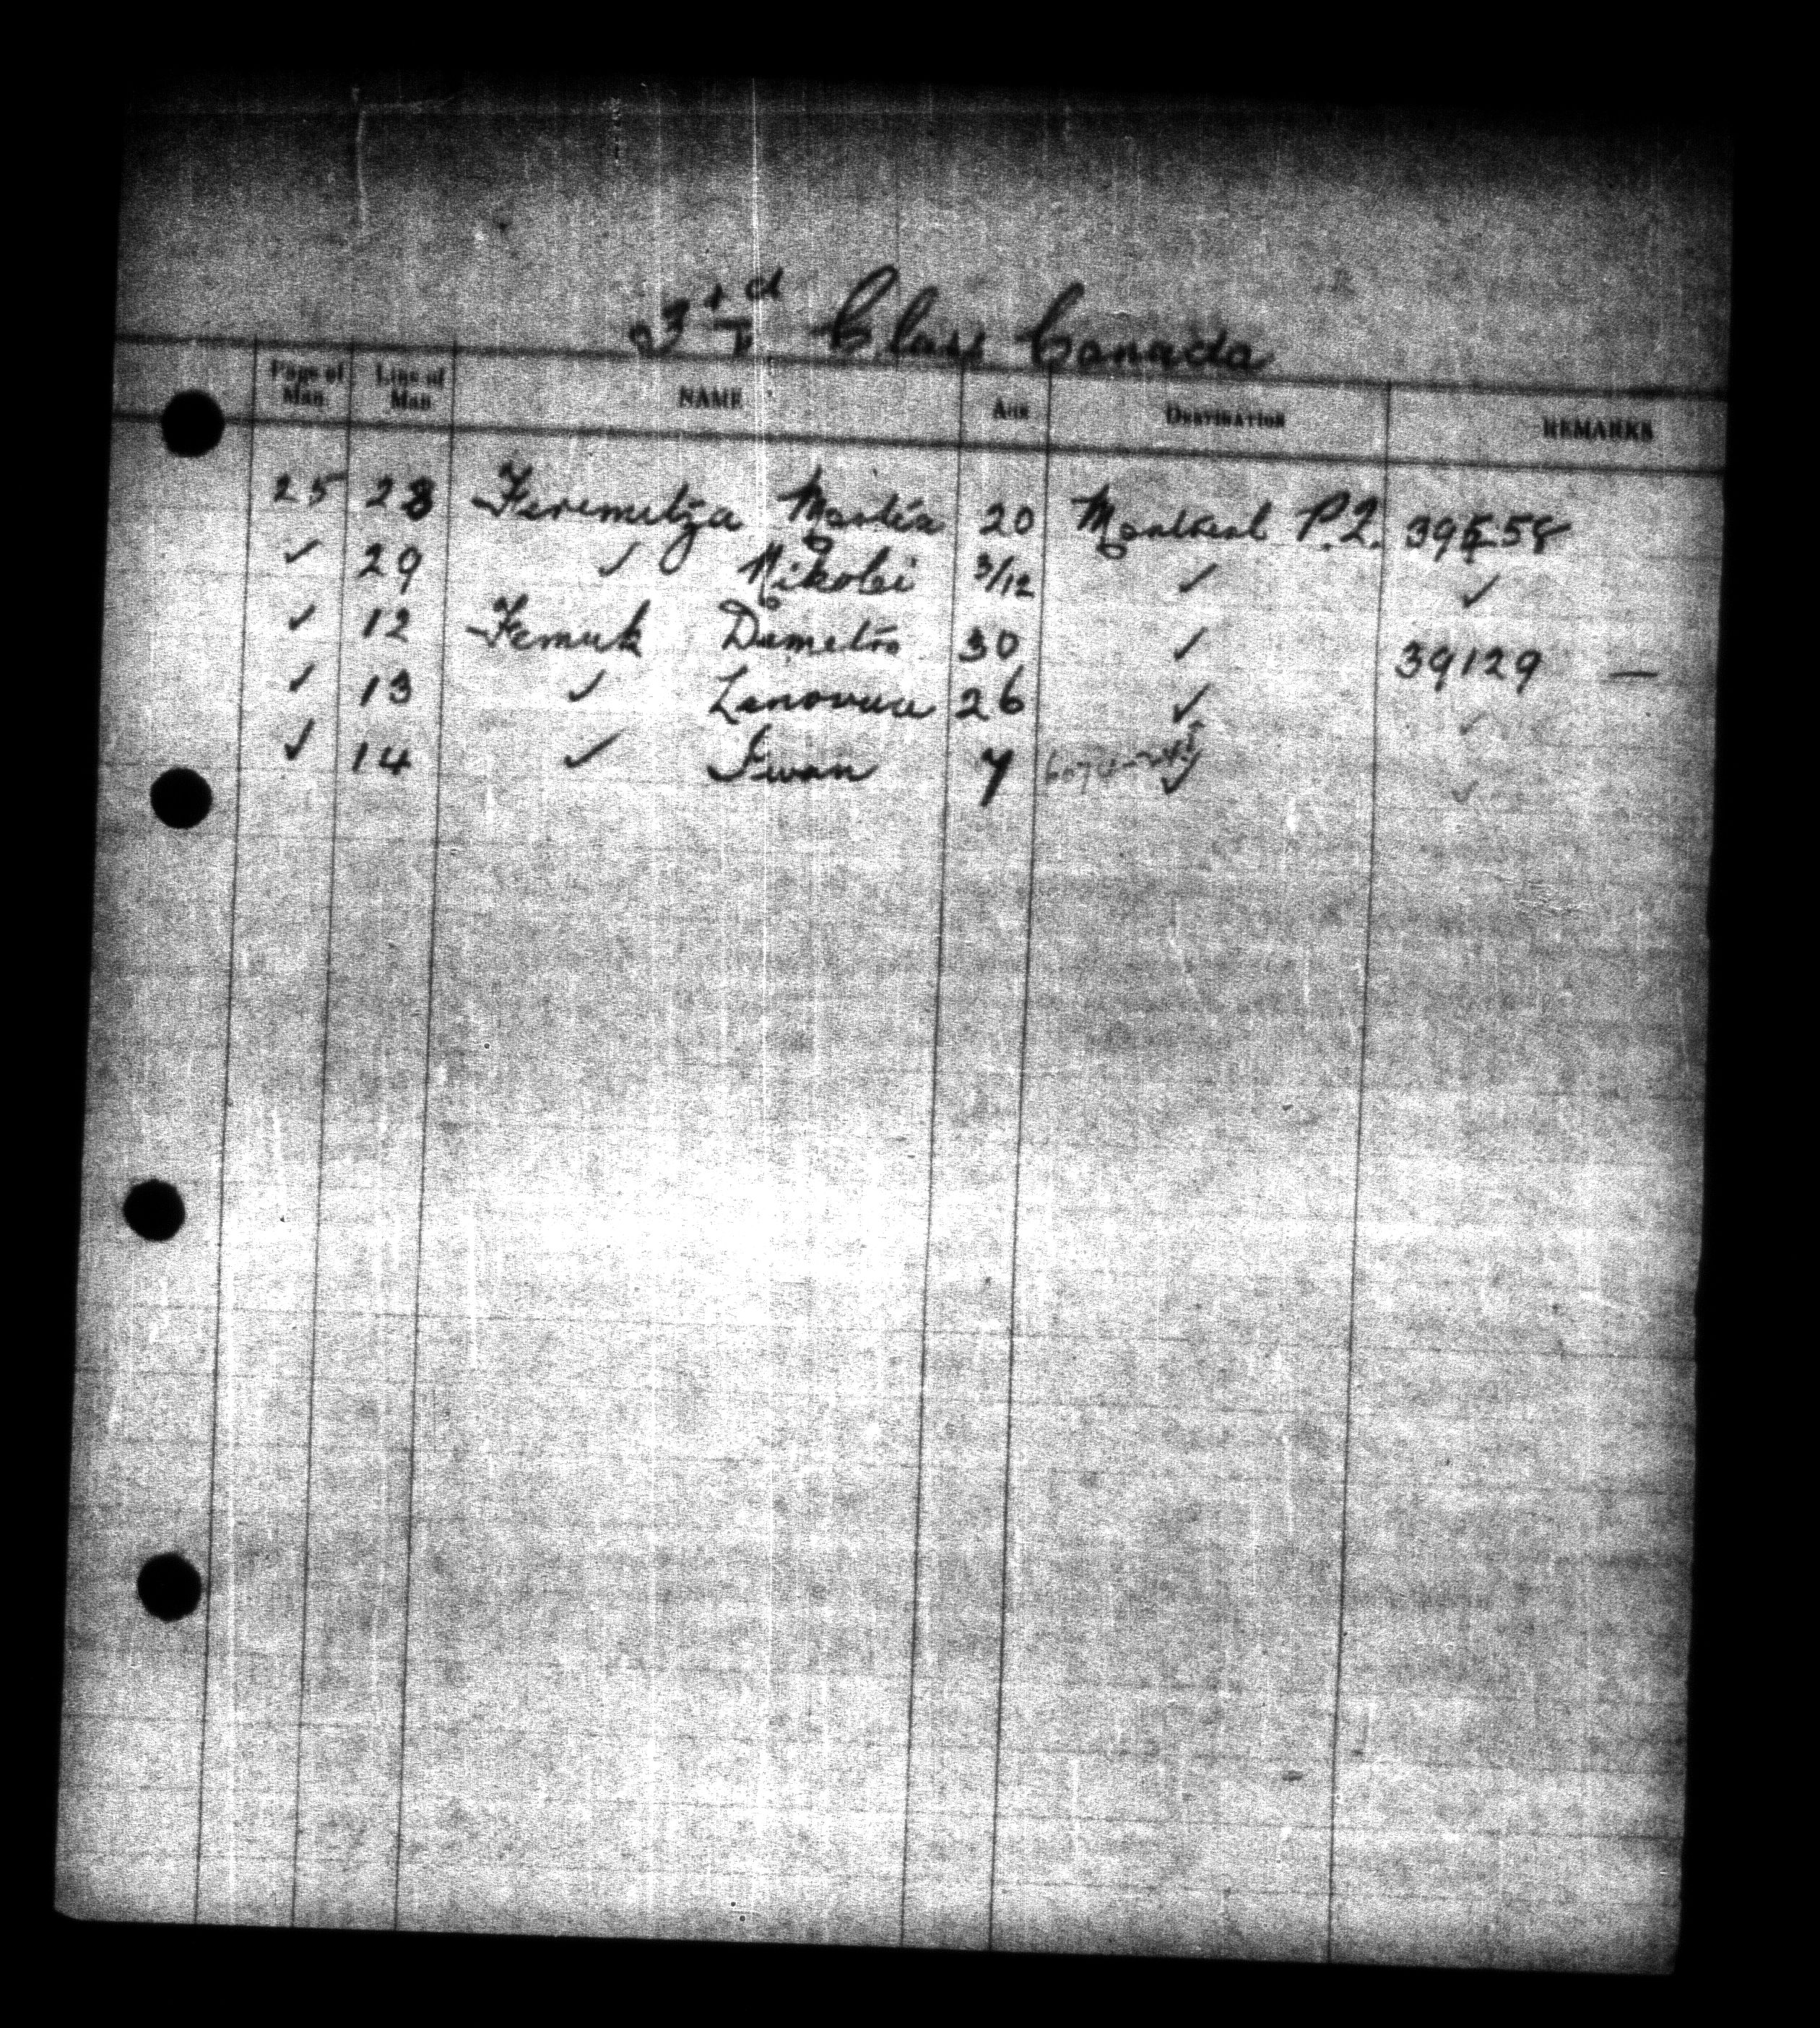 3rd Class Canada
Page of Man. Line of Man NAME AGE DESTINATION REMARKS
25 28 Martin 20 Montreal P.Q. 39558
✓ 29 ✓ Nikolai 3/12 ✓ ✓
✓ 12 Dumetro 30 ✓ 39129 —
✓ 13 ✓ 26 ✓ ✓
✓ 14 ✓ Iwan 7 ✓ ✓